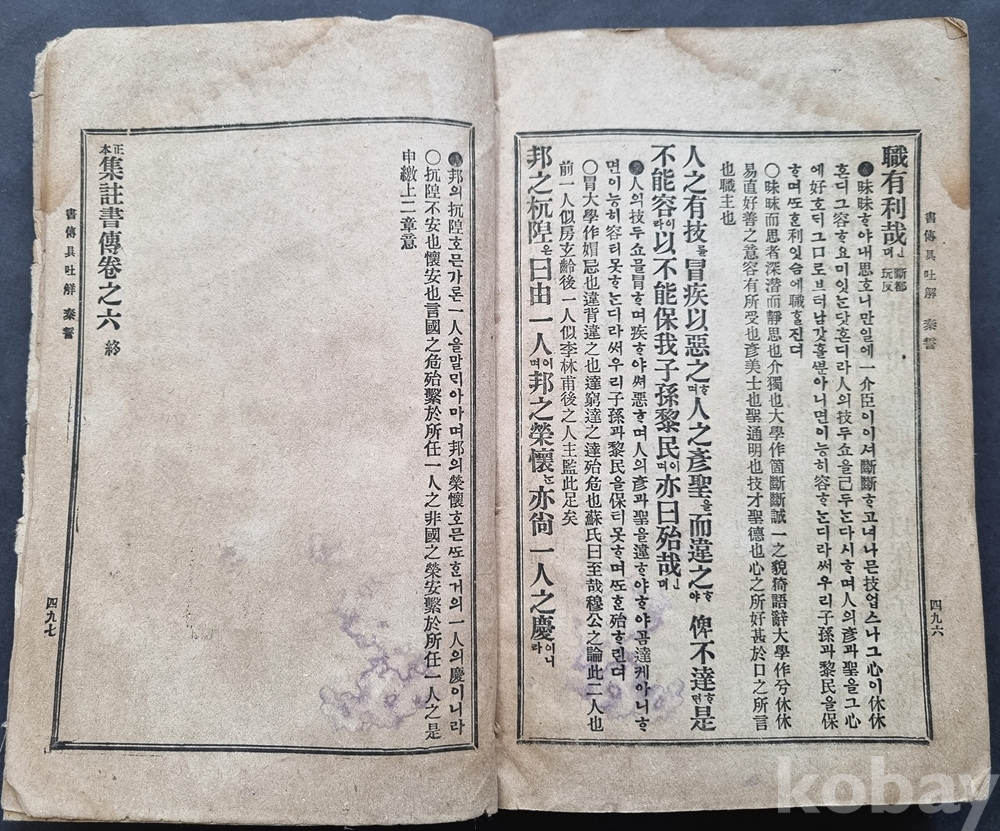 書傳具吐解 秦誓
四九六
職有利哉ᆫ뎌 斷都玩反
昧昧히야내思호니만일에一介臣이이셔斷斷ᄒᆞ고녀나믄技업스나그心이休休
혼디그容ᄒᆞ요미잇ᄂᆞᆫ닷혼디라人의技두쇼을己두ᄂᆞᆫ다시ᄒᆞ며人의彦과聖을그心
에好호ᄃᆡ그口로브터남갓ᄒᆞᆯᄲᅮᆫ아니면이능히容ᄒᆞᄂᆞᆫ디라써우리子孫과黎民을保
ᄒᆞ며ᄯᅩᄒᆞᆫ利잇슴에職ᄒᆞᆯ진뎌
○昧昧而思者深潛而靜思也介獨也大學作箇斷斷誠一之貌猗語辭大學作兮休休
易直好善之意容有所受也彦美士也聖通明也技才聖德也心之所好甚於口之所言
也職主也
人之有技를冒疾以惡之ᄒᆞ며人之彥聖을而違之ᄒᆞ야俾不達ᄒᆞ면是
不能容이라以不能保我子孫黎民이며亦曰殆哉ᆫ뎌
人의技두쇼믈冒ᄒᆞ며疾ᄒᆞ야써惡ᄒᆞ며人의彦과聖을違ᄒᆞ야ᄒᆞ야곰達케아니ᄒᆞ
면이능히容티못ᄒᆞᄂᆞᆫ디라써우리子孫과黎民을保티못ᄒᆞ며ᄯᅩᄒᆞᆫ殆ᄒᆞ린뎌
○冒大學作媢忌也違背違之也達窮達之達殆危也蘇氏曰至哉穆公之論此二人也
前一人似房玄齡後一人似李林甫後之人主監此足矣
邦之杌隉은曰由一人이며邦之榮懷ᄂᆞᆫ亦尙一人之慶이니라
邦의杌隉호믄가론一人을말ᄆᆡ아마며邦의榮懷호믄ᄯᅩᄒᆞᆫ거의一人의慶이니라
○杌隉不安也懷安也言國之危殆繫於所任一人之非國之榮安繫於所任一人之是
申繳上二章意
正本集註書傳卷之六 終
書傳具吐解 秦誓
四九七
kobay